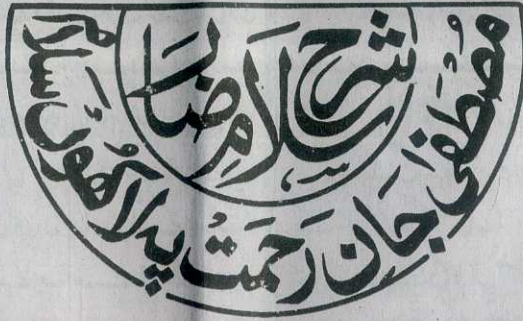 شرح سلام رضا
مصطفیٰ جان رحمت پہ لاکھوں سلام